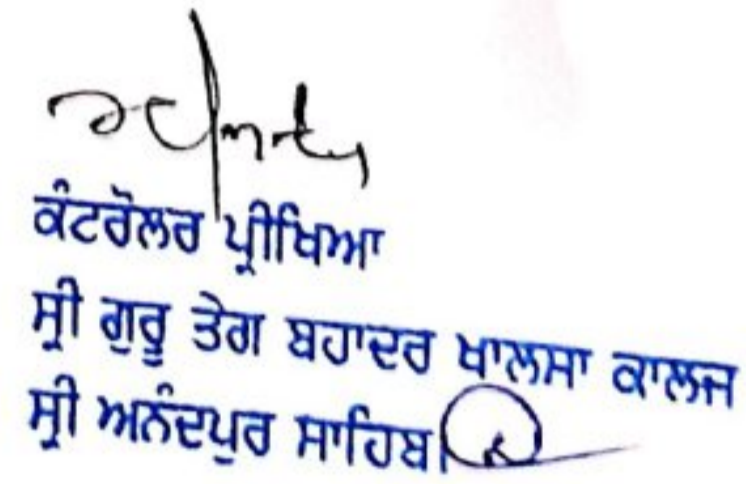 ਕੰਟਰੋਲਰ ਪ੍ਰੀਖਿਆ
ਸ੍ਰੀ ਗੁਰੂ ਤੇਗ ਬਹਾਦਰ ਖਾਲਸਾ ਕਾਲਜ
ਸ੍ਰੀ ਅਨੰਦਪੁਰ ਸਾਹਿਬ।